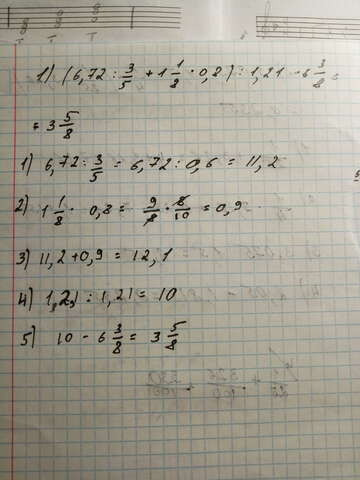 1) (6,72 : 3/5 + 1 1/8 · 0,8) : 1,21 - 6 3/8 =
= 3 5/8
1) 6,72 : 3/5 = 6,72 : 0,6 = 11,2
2) 1 1/8 · 0,8 = 9/8 · 8/10 = 0,9
3) 11,2 + 0,9 = 12,1
4) 1,2,1 : 1,21 = 10
5) 10 - 6 3/8 = 3 5/8